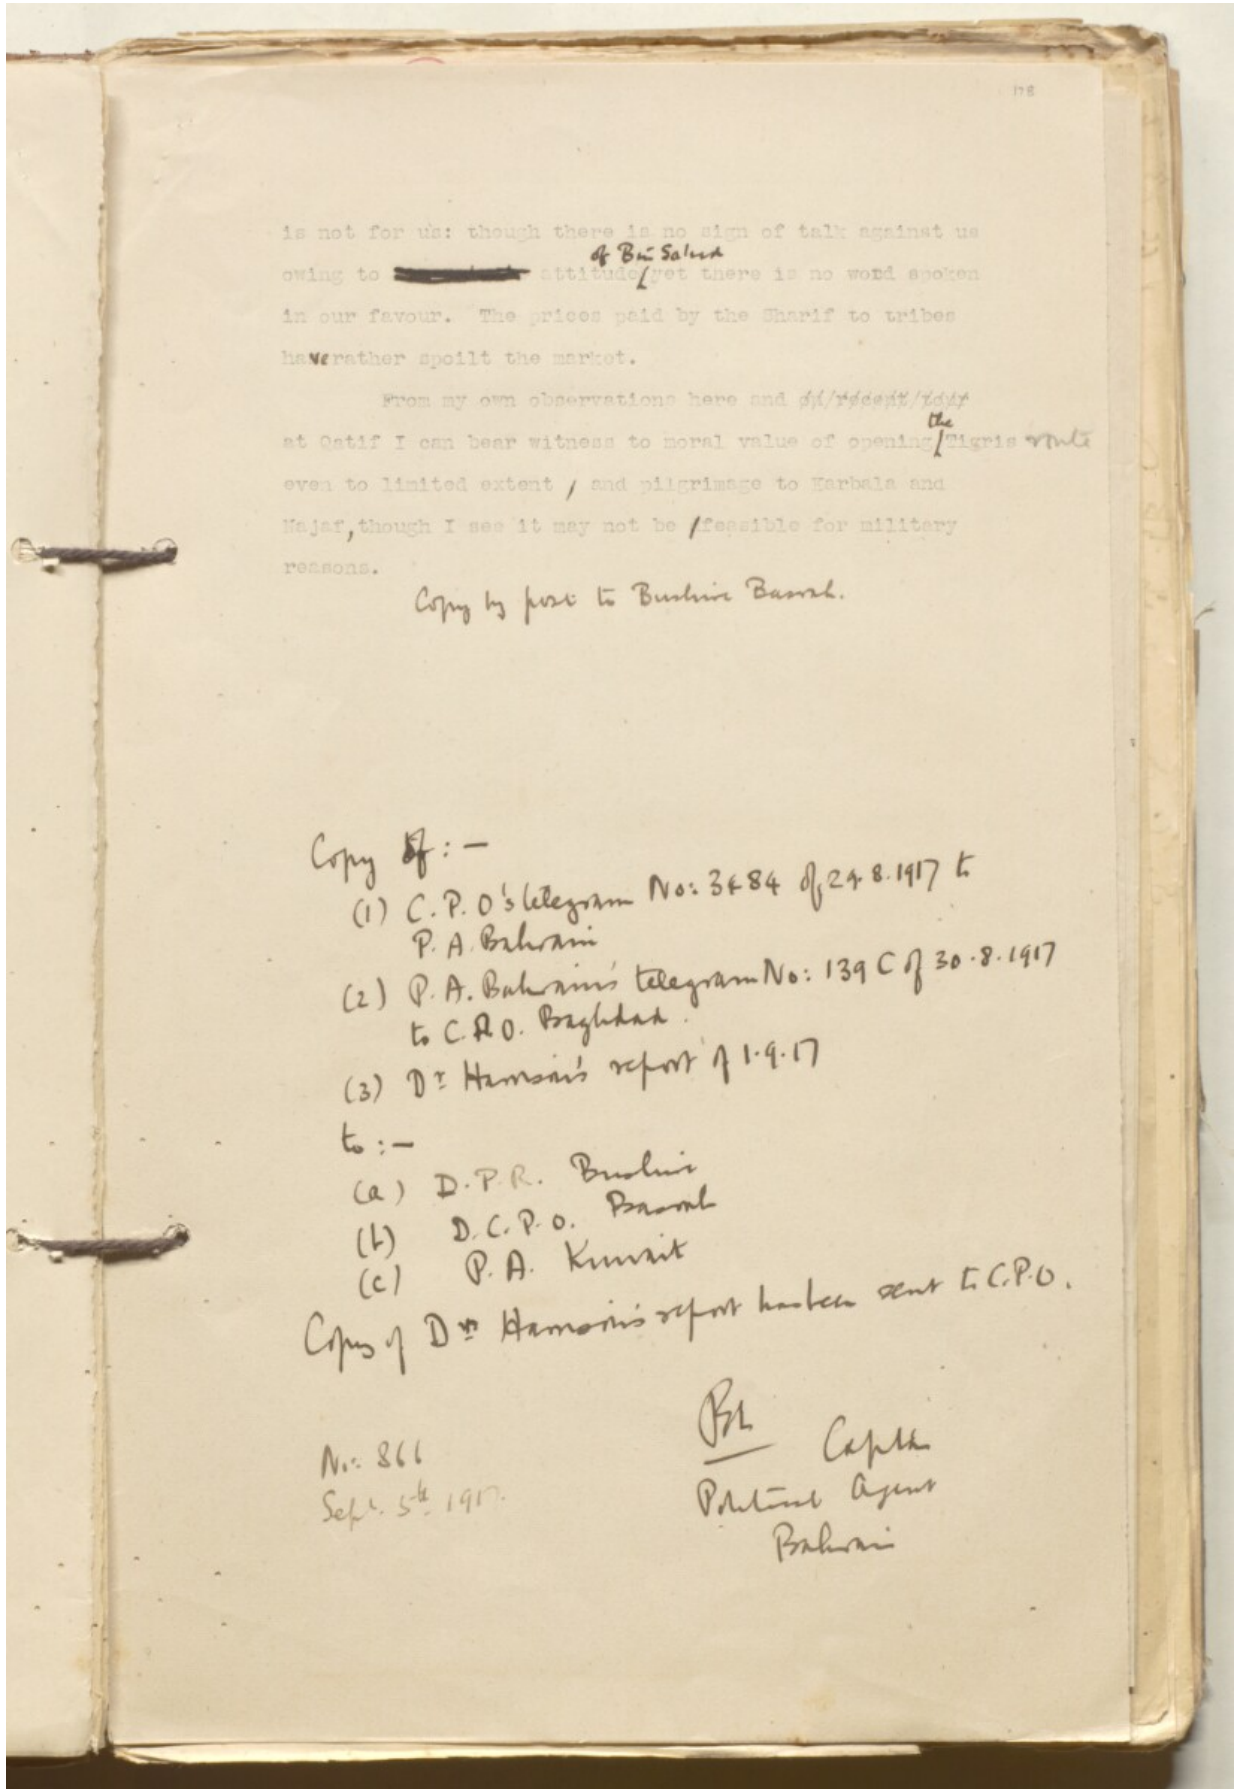 178
is not for us: though there is no sign of talk against us
of Bin Sa'ud
owing to attitude yet there is no word spoken
in our favour. The prices paid by the Sharif to tribes
have rather spoilt the market.
From my own observations here and on/recent/tour
the
at Qatif I can bear witness to moral value of opening Tigris route
even to limited extent, and pilgrimage to Karbala and
Najaf, though I see it may not be feasible for military
reasons.
Copy by post to Bushire Basrah.
Copy of :—
(1) C.P.O's telegram No: 3484 of 29.8.1917 to
P. A. Bahrain
(2) P. A. Bahrain's telegram No: 139 C of 30.8.1917
to C.P.O. Baghdad.
(3) Dr Harrison's report of 1.9.17
to :—
(a) D.P.R. Bushire
(b) D.C.P.O. Basrah
(c) P. A. Kuwait
Copy of Dr Harrison's report has been sent to C.P.O.
Captn
No: 866
Political Agent
Sept. 5th 1917.
Bahrain